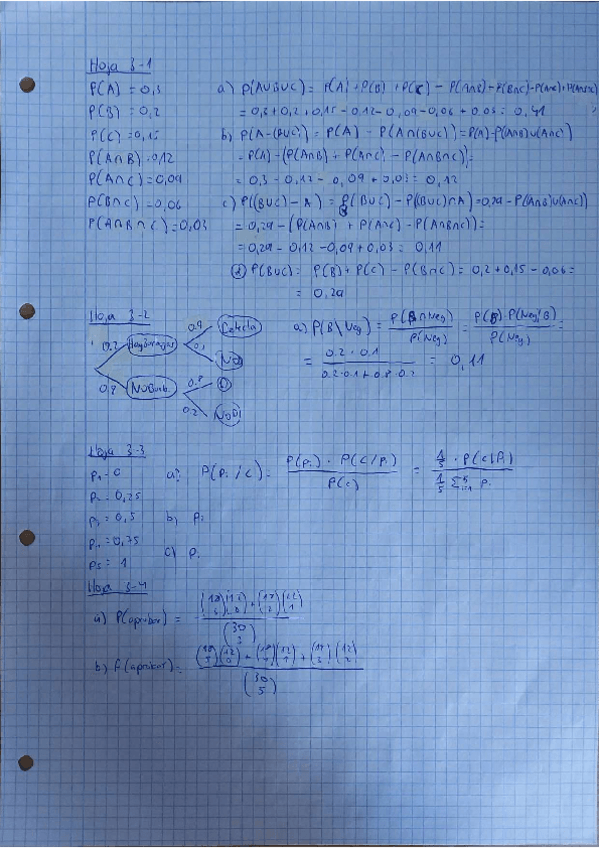 Hoja 3-1
P(A) = 0,3
P(B) = 0,2
P(C) = 0,15
P(A∩B) = 0,12
P(A∩C) = 0,09
P(B∩C) = 0,06
P(A∩B∩C) = 0,03
a) P(A∪B∪C) = P(A) + P(B) + P(C) - P(A∩B) - P(B∩C) - P(A∩C) + P(A∩B∩C)
= 0,3 + 0,2 + 0,15 - 0,12 - 0,09 - 0,06 + 0,03 = 0,41
b) P(A-(B∪C)) = P(A) - P(A∩(B∪C)) = P(A) - P((A∩B)∪(A∩C))
= P(A) - (P(A∩B) + P(A∩C) - P(A∩B∩C)) =
= 0,3 - 0,12 - 0,09 + 0,03 = 0,12
c) P((B∪C) - A) = P(B∪C) - P((B∪C)∩A) = 0,29 - P((A∩B)∪(A∩C))
= 0,29 - (P(A∩B) + P(A∩C) - P(A∩B∩C)) =
= 0,29 - 0,12 - 0,09 + 0,03 = 0,11
P(B∪C) = P(B) + P(C) - P(B∩C) = 0,2 + 0,15 - 0,06 =
= 0,29
Hoja 3-2
0,2
0,8
0,9
0,1
No
0,8
0,2
a) P(B\Neg) = P(B∩Neg) / P(Neg) = P(B)·P(Neg/B) / P(Neg) =
= 0.2 · 0.1 / 0.2·0.1 + 0.8·0.2 = 0,11
Hoja 3-3
p₁ = 0
p₂ = 0,25
p₃ = 0,5
p₄ = 0,75
p₅ = 1
P(pᵢ / C) = P(pᵢ) · P(C/pᵢ) / P(C) = 1/5 · P(C|Pᵢ) / 1/5 Σ pᵢ
b) pᵢ
c) pᵢ
Hoja 3-4
a) P(aprobar) =
(30 3)
b) P(aprobar) =
(30 5)